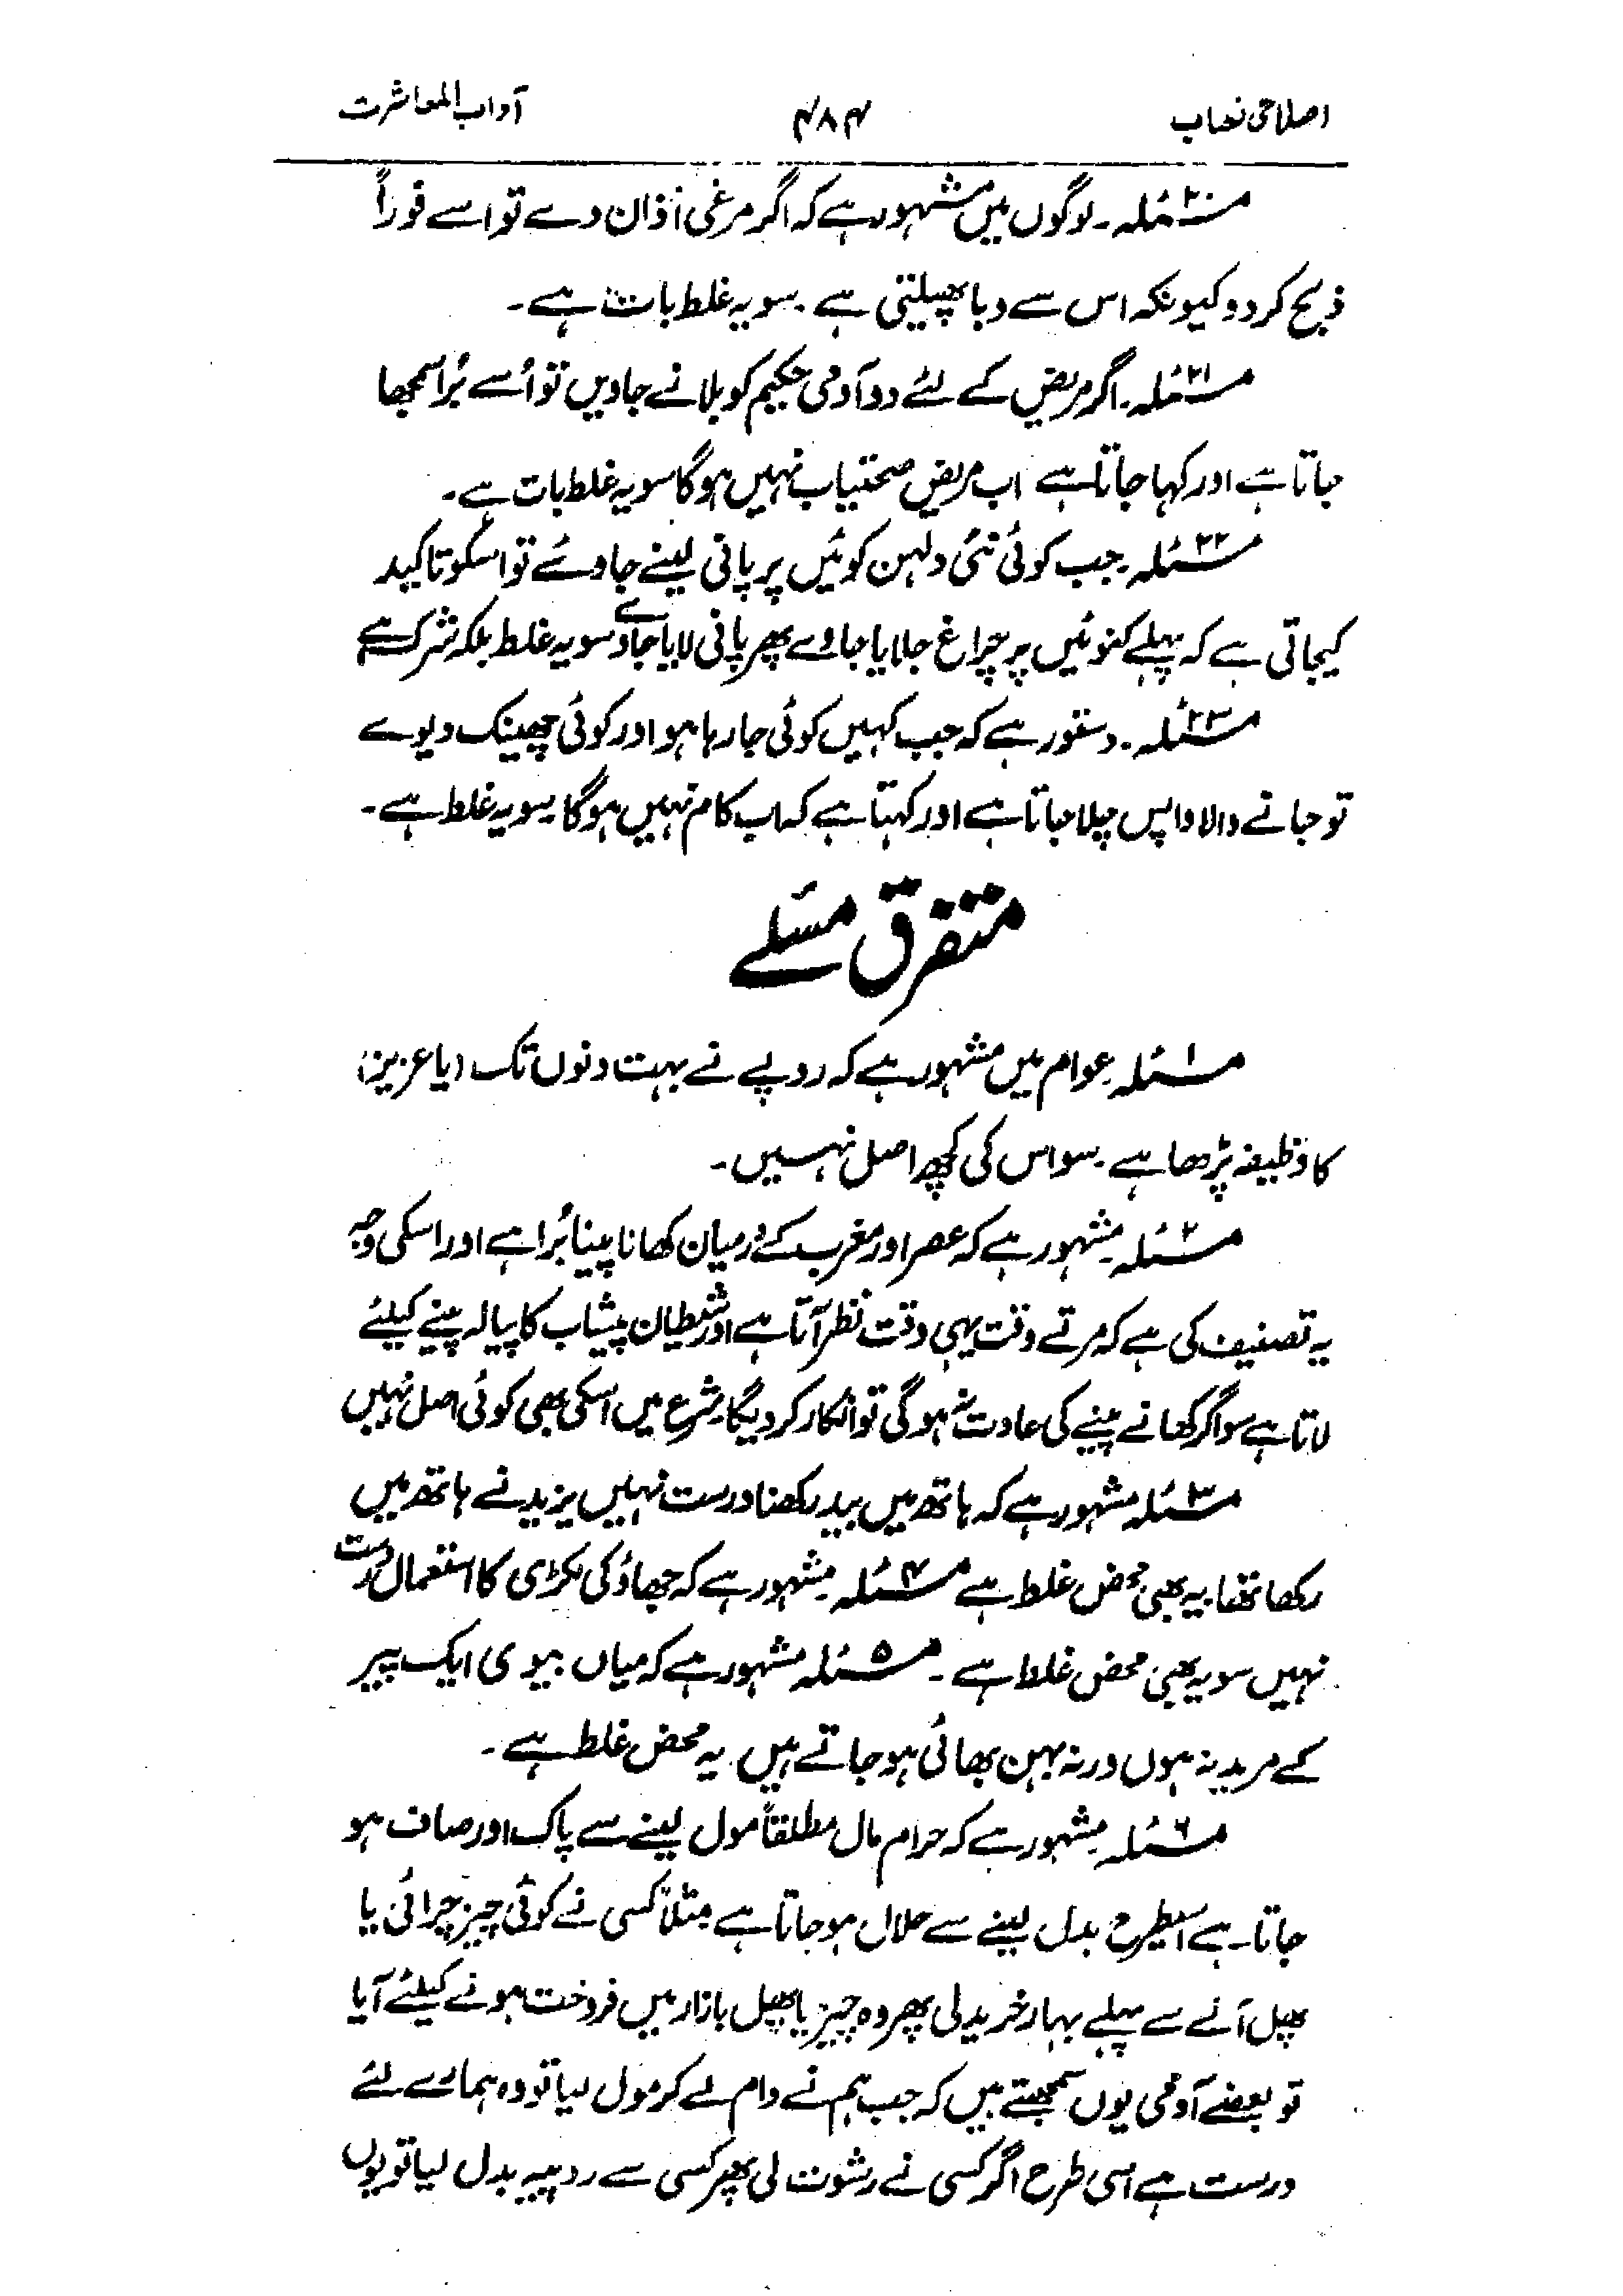 اصلاحی نصاب
۴۸۴
آداب المعاشرت
مسئلہ۲۰۔ لوگوں میں مشہور ہے کہ اگر مرغی اذان دے تو اسے فوراً
ذبح کر دو کیونکہ اس سے وبا پھیلتی ہے۔ سو یہ غلط بات ہے۔
مسئلہ۲۱۔ اگر مریض کے لئے دو آدمی حکیم کو بلانے جاویں تو اُسے بُرا سمجھا
جاتا ہے اور کہا جاتا ہے اب مریض صحتیاب نہیں ہوگا سو یہ غلط بات ہے۔
مسئلہ۲۲۔ جب کوئی نئی دلہن کوئیں پر پانی لینے جاوے تو اسکو تاکید
کیجاتی ہے کہ پہلے کنوئیں پر چراغ جلایا جاوے پھر پانی لایا جاوے سو یہ غلط بلکہ شرک ہے
مسئلہ۲۳۔ دستور ہے کہ جب کہیں کوئی جا رہا ہو اور کوئی چھینک دیوے
تو جانے والا واپس چلا جاتا ہے اور کہتا ہے کہ اب کام نہیں ہوگا۔ سو یہ غلط ہے۔
متفرق مسئلے
مسئلہ۱۔ عوام میں مشہور ہے کہ روپے نے بہت دنوں تک (یا عزیز)
کا وظیفہ پڑھا ہے۔ سو اس کی کچھ اصل نہیں۔
مسئلہ۲۔ مشہور ہے کہ عصر اور مغرب کے درمیان کھانا پینا بُرا ہے اور اسکی وجہ
یہ تصنیف کی ہے کہ مرتے وقت یہی وقت نظر آتا ہے اور شیطان پیشاب کا پیالہ پینے کیلئے
لاتا ہے سو اگر کھانے پینے کی عادت نہ ہوگی تو انکار کر دیگا۔ شرع میں اسکی بھی کوئی اصل نہیں
مسئلہ۳ مشہور ہے کہ ہاتھ میں بید رکھنا درست نہیں یزید نے ہاتھ میں
رکھا تھا یہ بھی محض غلط ہے مسئلہ۴۔ مشہور ہے کہ جھاؤ کی لکڑی کا استعمال درست
نہیں سو یہ بھی محض غلط ہے۔ مسئلہ۵ مشہور ہے کہ میاں بیوی ایک پیر
کے مرید نہ ہوں ورنہ بہن بھائی ہو جاتے ہیں یہ محض غلط ہے۔
مسئلہ۶۔ مشہور ہے کہ حرام مال مطلقاً مول لینے سے پاک اور صاف ہو
جاتا ہے اسیطرح بدل لینے سے حلال ہو جاتا ہے مثلاً کسی نے کوئی چیز چرائی یا
پھل آنے سے پہلے بہار خرید لی پھر وہ چیز یا پھل بازار میں فروخت ہونے کیلئے آیا
تو بعضے آدمی یوں سمجھتے ہیں کہ جب ہم نے دام لے کر مول لیا تو وہ ہمارے لئے
درست ہے اسی طرح اگر کسی نے رشوت لی پھر کسی سے روپیہ بدل لیا تو یوں